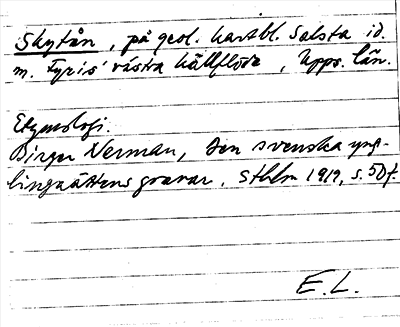 Skytån, på geol. kartbl. Salsta id.
m. Fyris' västra källflöde, Upps. län.
Etymologi.
Birger Nerman, Den svenska yng-
lingaättens gravar. Sthlm 1919, s. 50 f.
E. L.